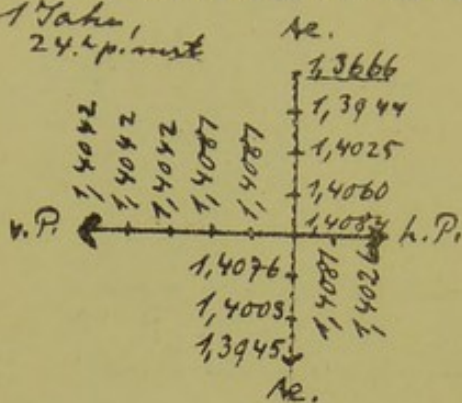 1 Jahr,
24.h p. mort
Ae.
1,3666
1,3944
1,4025
1,4060
1,4084
v.P.
1,4042
1,4042
1,4042
1,4081
1,4081
h.P.
1,4081
1,4029
1,4076
1,4009
1,3945
Ae.